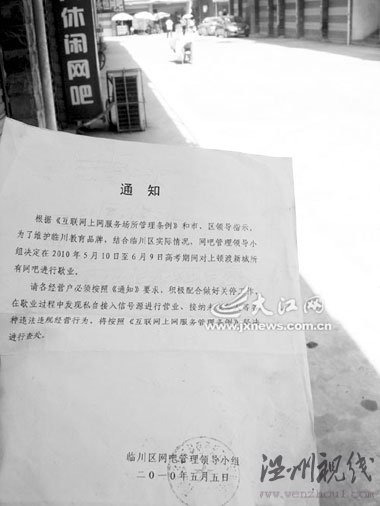 休闲网吧
通知
根据《互联网上网服务场所管理条例》和市、区领导指示,
为了维护临川教育品牌,结合临川区实际情况,网吧管理领导小
组决定在2010年5月10日至6月9日高考期间对上顿渡新城所
有网吧进行歇业。
请各经营户必须按照《通知》要求,积极配合做好关停工作,
在歇业过程中发现私自接入信号源进行营业、接纳未
种违法违规经营行为,将按照《互联网上网服务管理条例》
进行查处。
大江网
www.jxnews.com.cn
临川区网吧管理领导小组
二〇一〇年五月五日
温州视线
www.wenzhou1.com